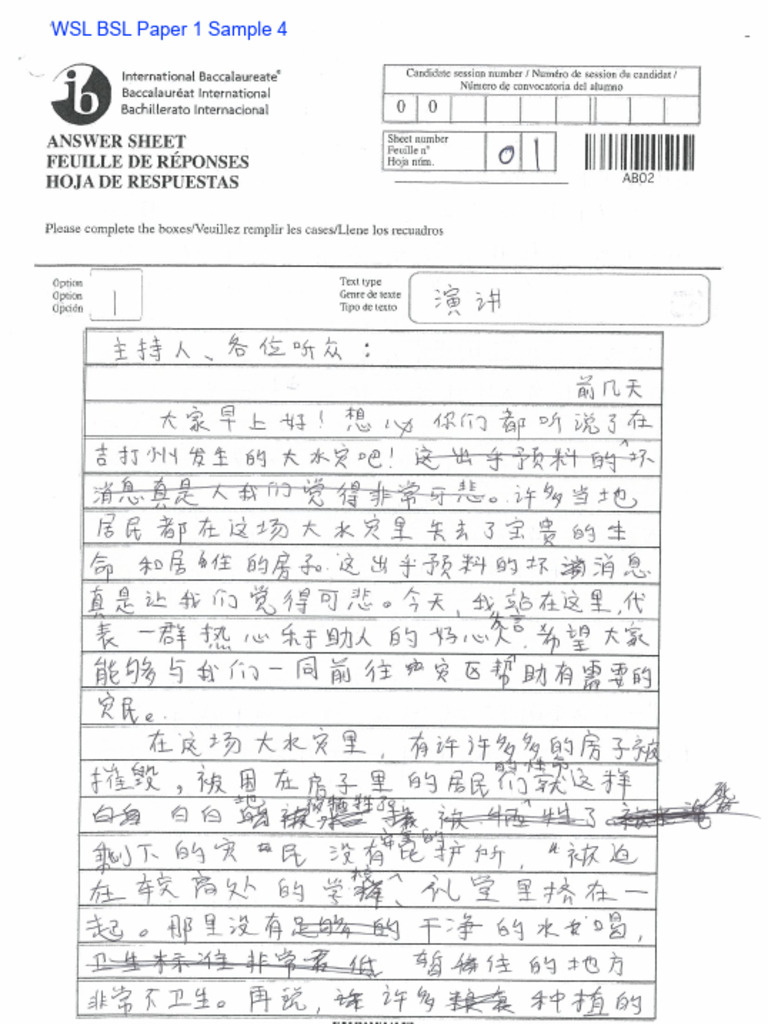 WSL BSL Paper 1 Sample 4
International Baccalaureate®
Baccalauréat International
Bachillerato Internacional
ANSWER SHEET
FEUILLE DE RÉPONSES
HOJA DE RESPUESTAS
Candidate session number / Numéro de session du candidat /
Número de convocatoria del alumno
0 0
Sheet number
Feuille n°
Hoja núm.
0 1
AB02
Please complete the boxes/Veuillez remplir les cases/Llene los recuadros
Option
Option
Opción
1
Text type
Genre de texte
Tipo de texto
演讲
主持人、各位听众：
前几天
大家早上好！想必你们都听说了在
吉打州发生的大水灾吧！这出乎预料的坏
消息真是人我们觉得非常可悲。许多当地
居民都在这场大水灾里失去了宝贵的生
命和居住的房子。这出乎预料的坏消息
真是让我们觉得可悲。今天，我站在这里，代
表一群热心乐于助人的好心人发言，希望大家
能够与我们一同前往灾区帮助有需要的
灾民。
在这场大水灾里，有许许多多的房子被
摧毁，被困在房子里的居民们的性命就这样
白白地牺牲了。
剩下的灾民没有安全的庇护所，被迫
在较高处的学校、礼堂里挤在一
起。那里没有足够的干净的水喝，
卫生标准非常低 暂住的地方
非常不卫生。再说，许多种植的